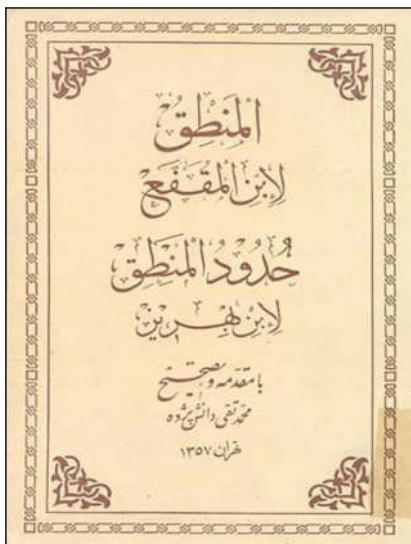 المَنطِقُ
لِابْنِ المُقَفَّعِ
حُدُودُ المَنطِقِ
لِابْنِ بِهْرِیز
با مقدمه و تصحیح
محمد تقی دانش پژوه
تهران ۱۳۵۷